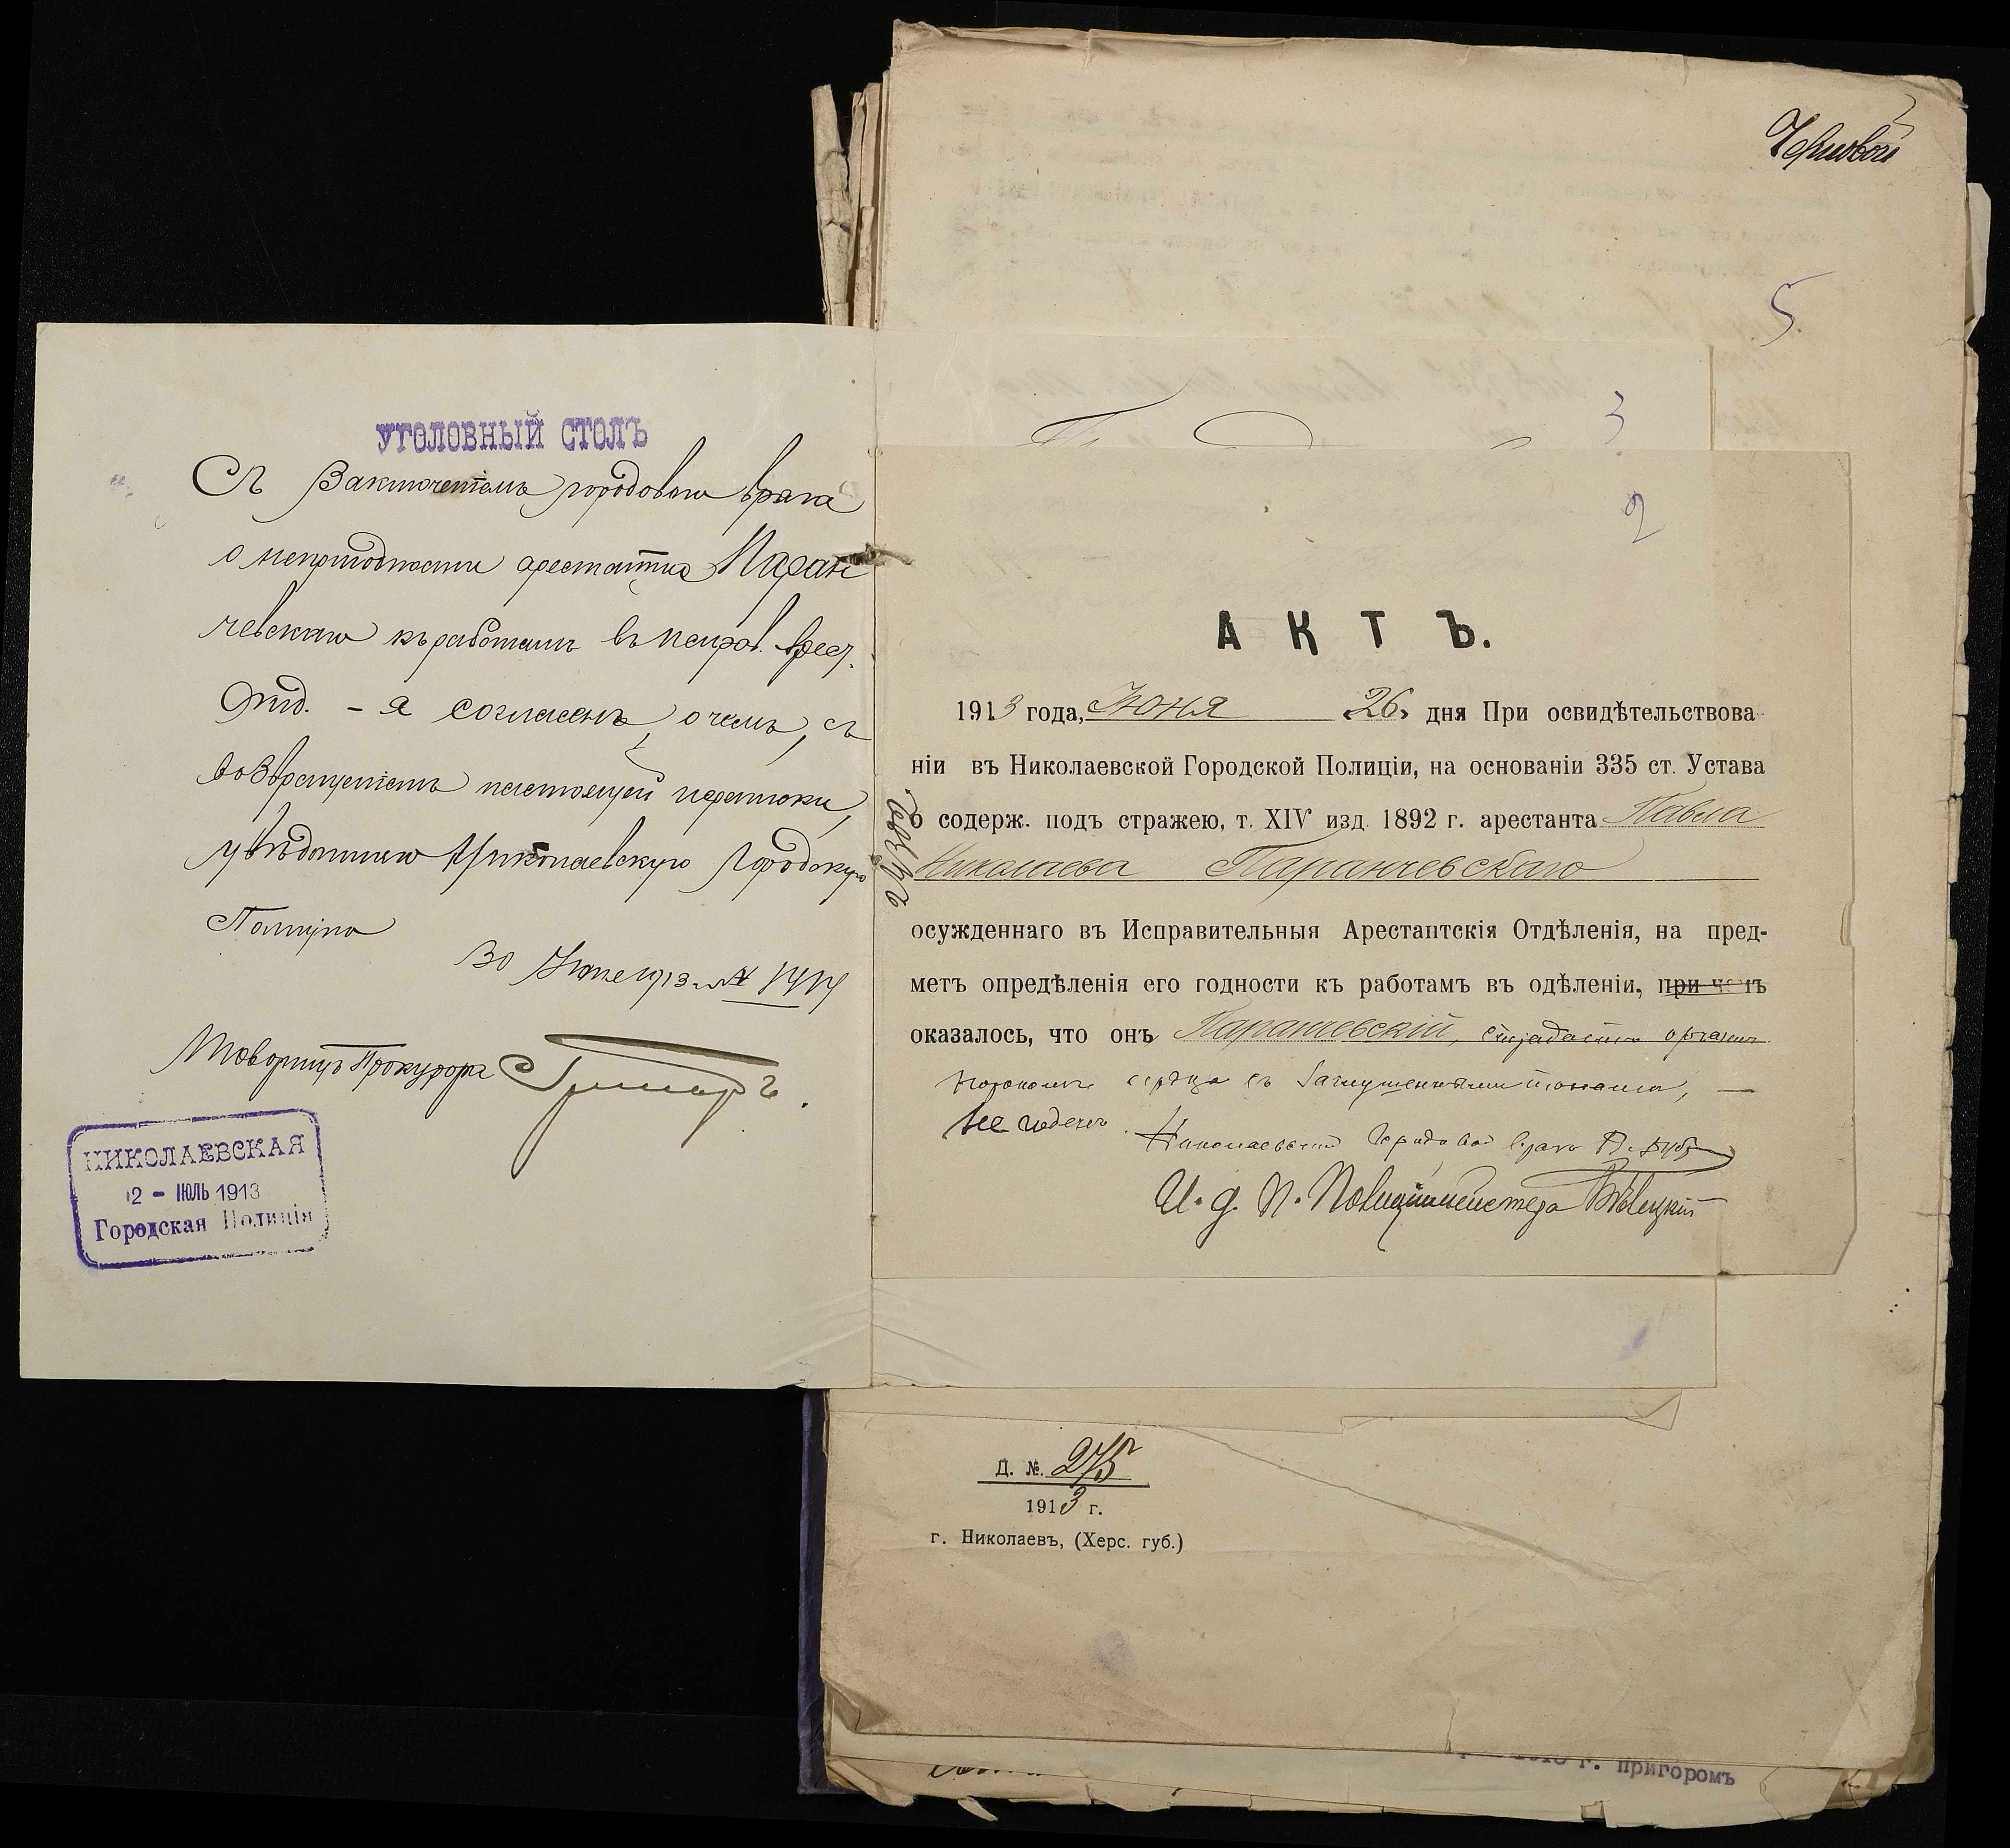 Черновой
5.
3
2
УГОЛОВНЫЙ СТОЛЪ
Съ заключенiемъ городового врача
о непригодности арестанта Паран
чевскаго къ работамъ въ Исправ. Арест.
Отд. - я согласенъ, о чемъ, съ
возвращенiемъ настоящей переписки,
увѣдомляю Николаевскую Городскую
Полицiю
30 Iюня 1913 г. №
Товарищъ Прокурора
НИКОЛАЕВСКАЯ
2 - IЮЛЬ 1913
Городская Полицiя
АКТЪ.
1913 года, Iюня 26 дня При освидѣтельствова-
нiи въ Николаевской Городской Полицiи, на основанiи 335 ст. Устава
о содерж. подъ стражею, т. XIV изд. 1892 г. арестанта Павла
Николаева Паранчевскаго
осужденнаго въ Исправительныя Арестантскiя Отдѣленiя, на пред-
метъ опредѣленiя его годности къ работамъ въ одѣленiи, при чемъ
оказалось, что онъ Паранчевскiй, страдаетъ органич.
порокомъ сердца съ заглушенными тонами, —
не годенъ.
Николаевскiй Городовой врачъ
И. д. П. Полицiймейстера
Д. №. 275
1913 г.
г. Николаевъ, (Херс. губ.)
г. пригоромъ